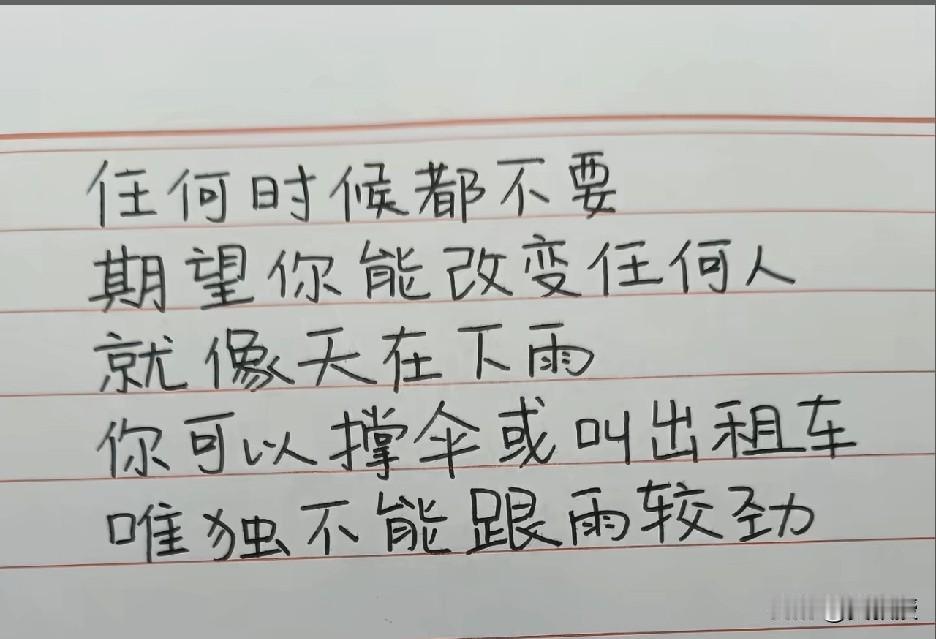 任何时候都不要
期望你能改变任何人
就像天在下雨
你可以撑伞或叫出租车
唯独不能跟雨较劲